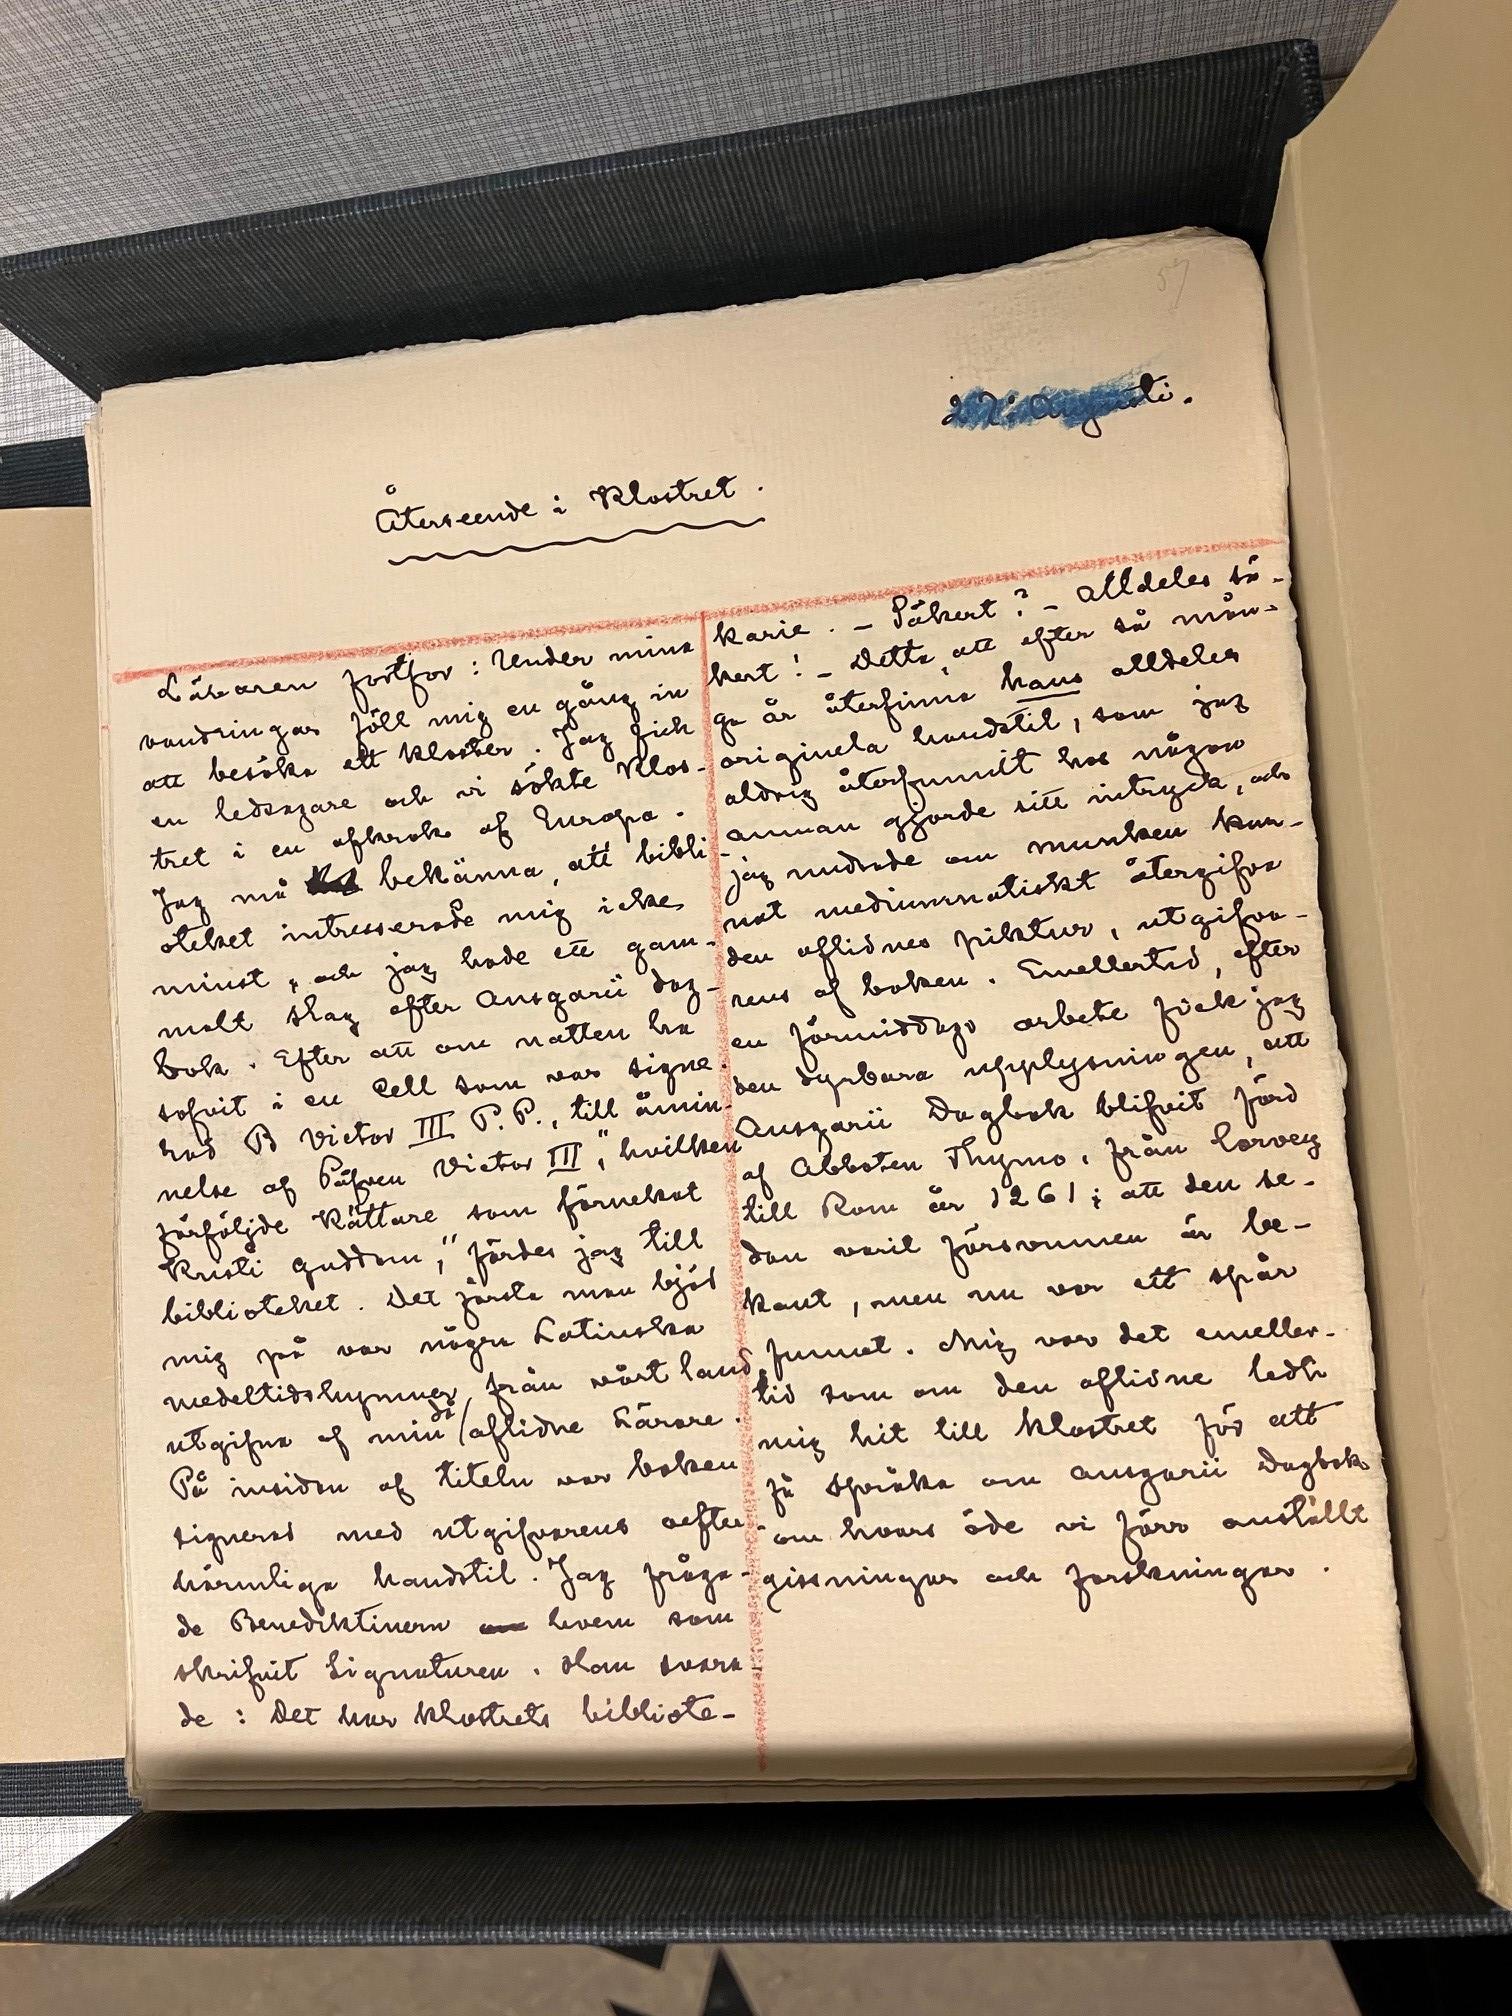 57
27. Augusti.
Återseende i Klostret.
Läraren fortfor: Under mina
vandringar föll mig en gång in
att besöka ett kloster. Jag fick
en ledsagare och vi sökte Klos-
tret i en afkrok af Europa.
Jag må bekänna, att bibli-
oteket intresserade mig icke
minst, och jag hade ett gam-
malt slag efter Ansgarii dag-
bok. Efter att om natten ha
sofvit i en Cell som var signe-
rad B Victor III P.P., till åmin-
nelse af Påfven Victor III, "hvilken
förföljde Kättare som förnekat
Kristi guddom," fördes jag till
biblioteket. Det första man bjöd
mig på var några Latinska
medeltidshymner, från vårt land,
utgifna af min då aflidne Lärare.
På insidan af titeln var boken
signerad med utgifvarens oefter-
härmliga handstil. Jag fråga-
de Benediktinern hvem som
skrifvit Signaturen. Han svara-
de: Det har klostrets bibliote-
karie. – Säkert? – Alldeles sä-
kert! – Detta, att efter så mån-
ga år återfinna hans alldeles
originela handstil, som jag
aldrig återfunnit hos någon
annan gjorde sitt intryck, och
jag undrade om munken kun-
nat mediumnatiskt återgifva
den aflidnes piktur, utgifva-
rens af boken. Emellertid, efter
en förmiddags arbete fick jag
den dyrbara upplysningen, att
Ansgarii Dagbok blifvit förd
af Abboten Thymo, från Corvey
till Rom år 1261; att den se-
dan varit försvunnen är be-
kant, men nu var ett spår
funnet. Mig var det emeller-
tid som om den aflidne ledt
mig hit till Klostret för att
få språka om Ansgarii Dagbok
om hvars öde vi förr anställt
gissningar och forskningar.